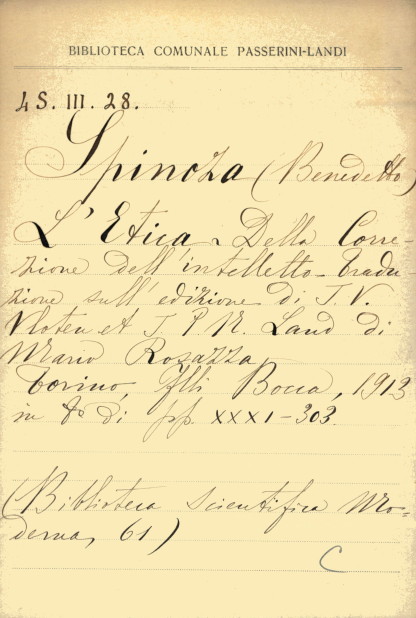 BIBLIOTECA COMUNALE PASSERINI-LANDI
4 S. III. 28.
Spinoza (Benedetto)
L'Etica - Della Corre-
zione dell'intelletto - Tradu-
zione sull'edizione di J. V.
Vloten et J. P. N. Land di
Mario Rosazza
Torino, flli Bocca, 1913
in 8° di pp. XXXI-303.
(Biblioteca Scientifica Mo-
derna, 61)
C